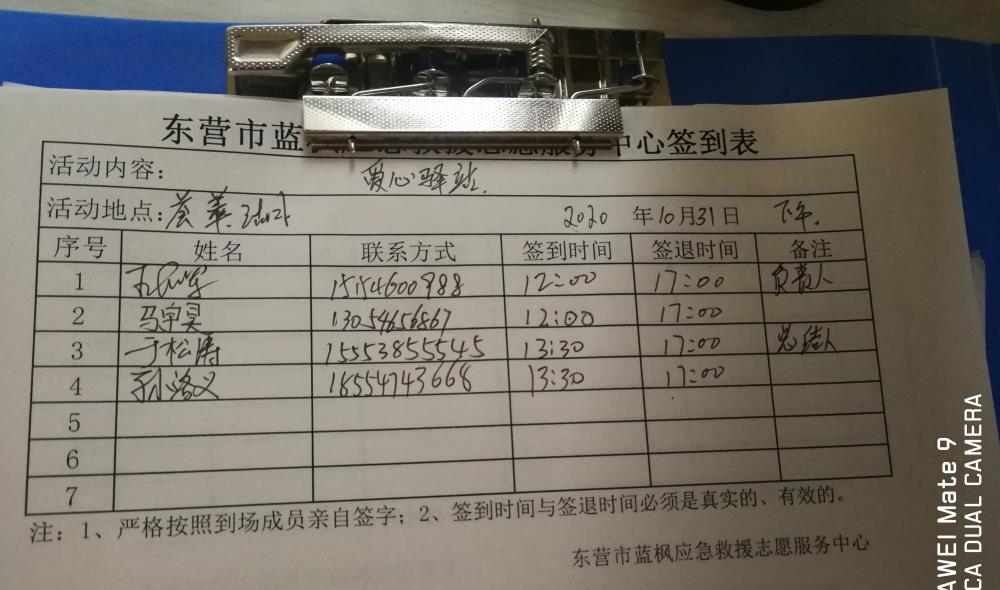 东营市蓝枫应急救援志愿服务中心签到表
活动内容： 爱心驿站.
活动地点： 2020 年10月31日 下午.
序号 姓名 联系方式 签到时间 签退时间 备注
1 15154600988 12:00 17:00 负责人
2 马宇昊 13054656867 12:00 17:00
3 于松涛 15553855545 13:30 17:00 总结人
4 孙洛义 18554743668 13:30 17:00
5
6
7
注：1、严格按照到场成员亲自签字；2、签到时间与签退时间必须是真实的、有效的。
东营市蓝枫应急救援志愿服务中心
AWEI Mate 9
CA DUAL CAMERA